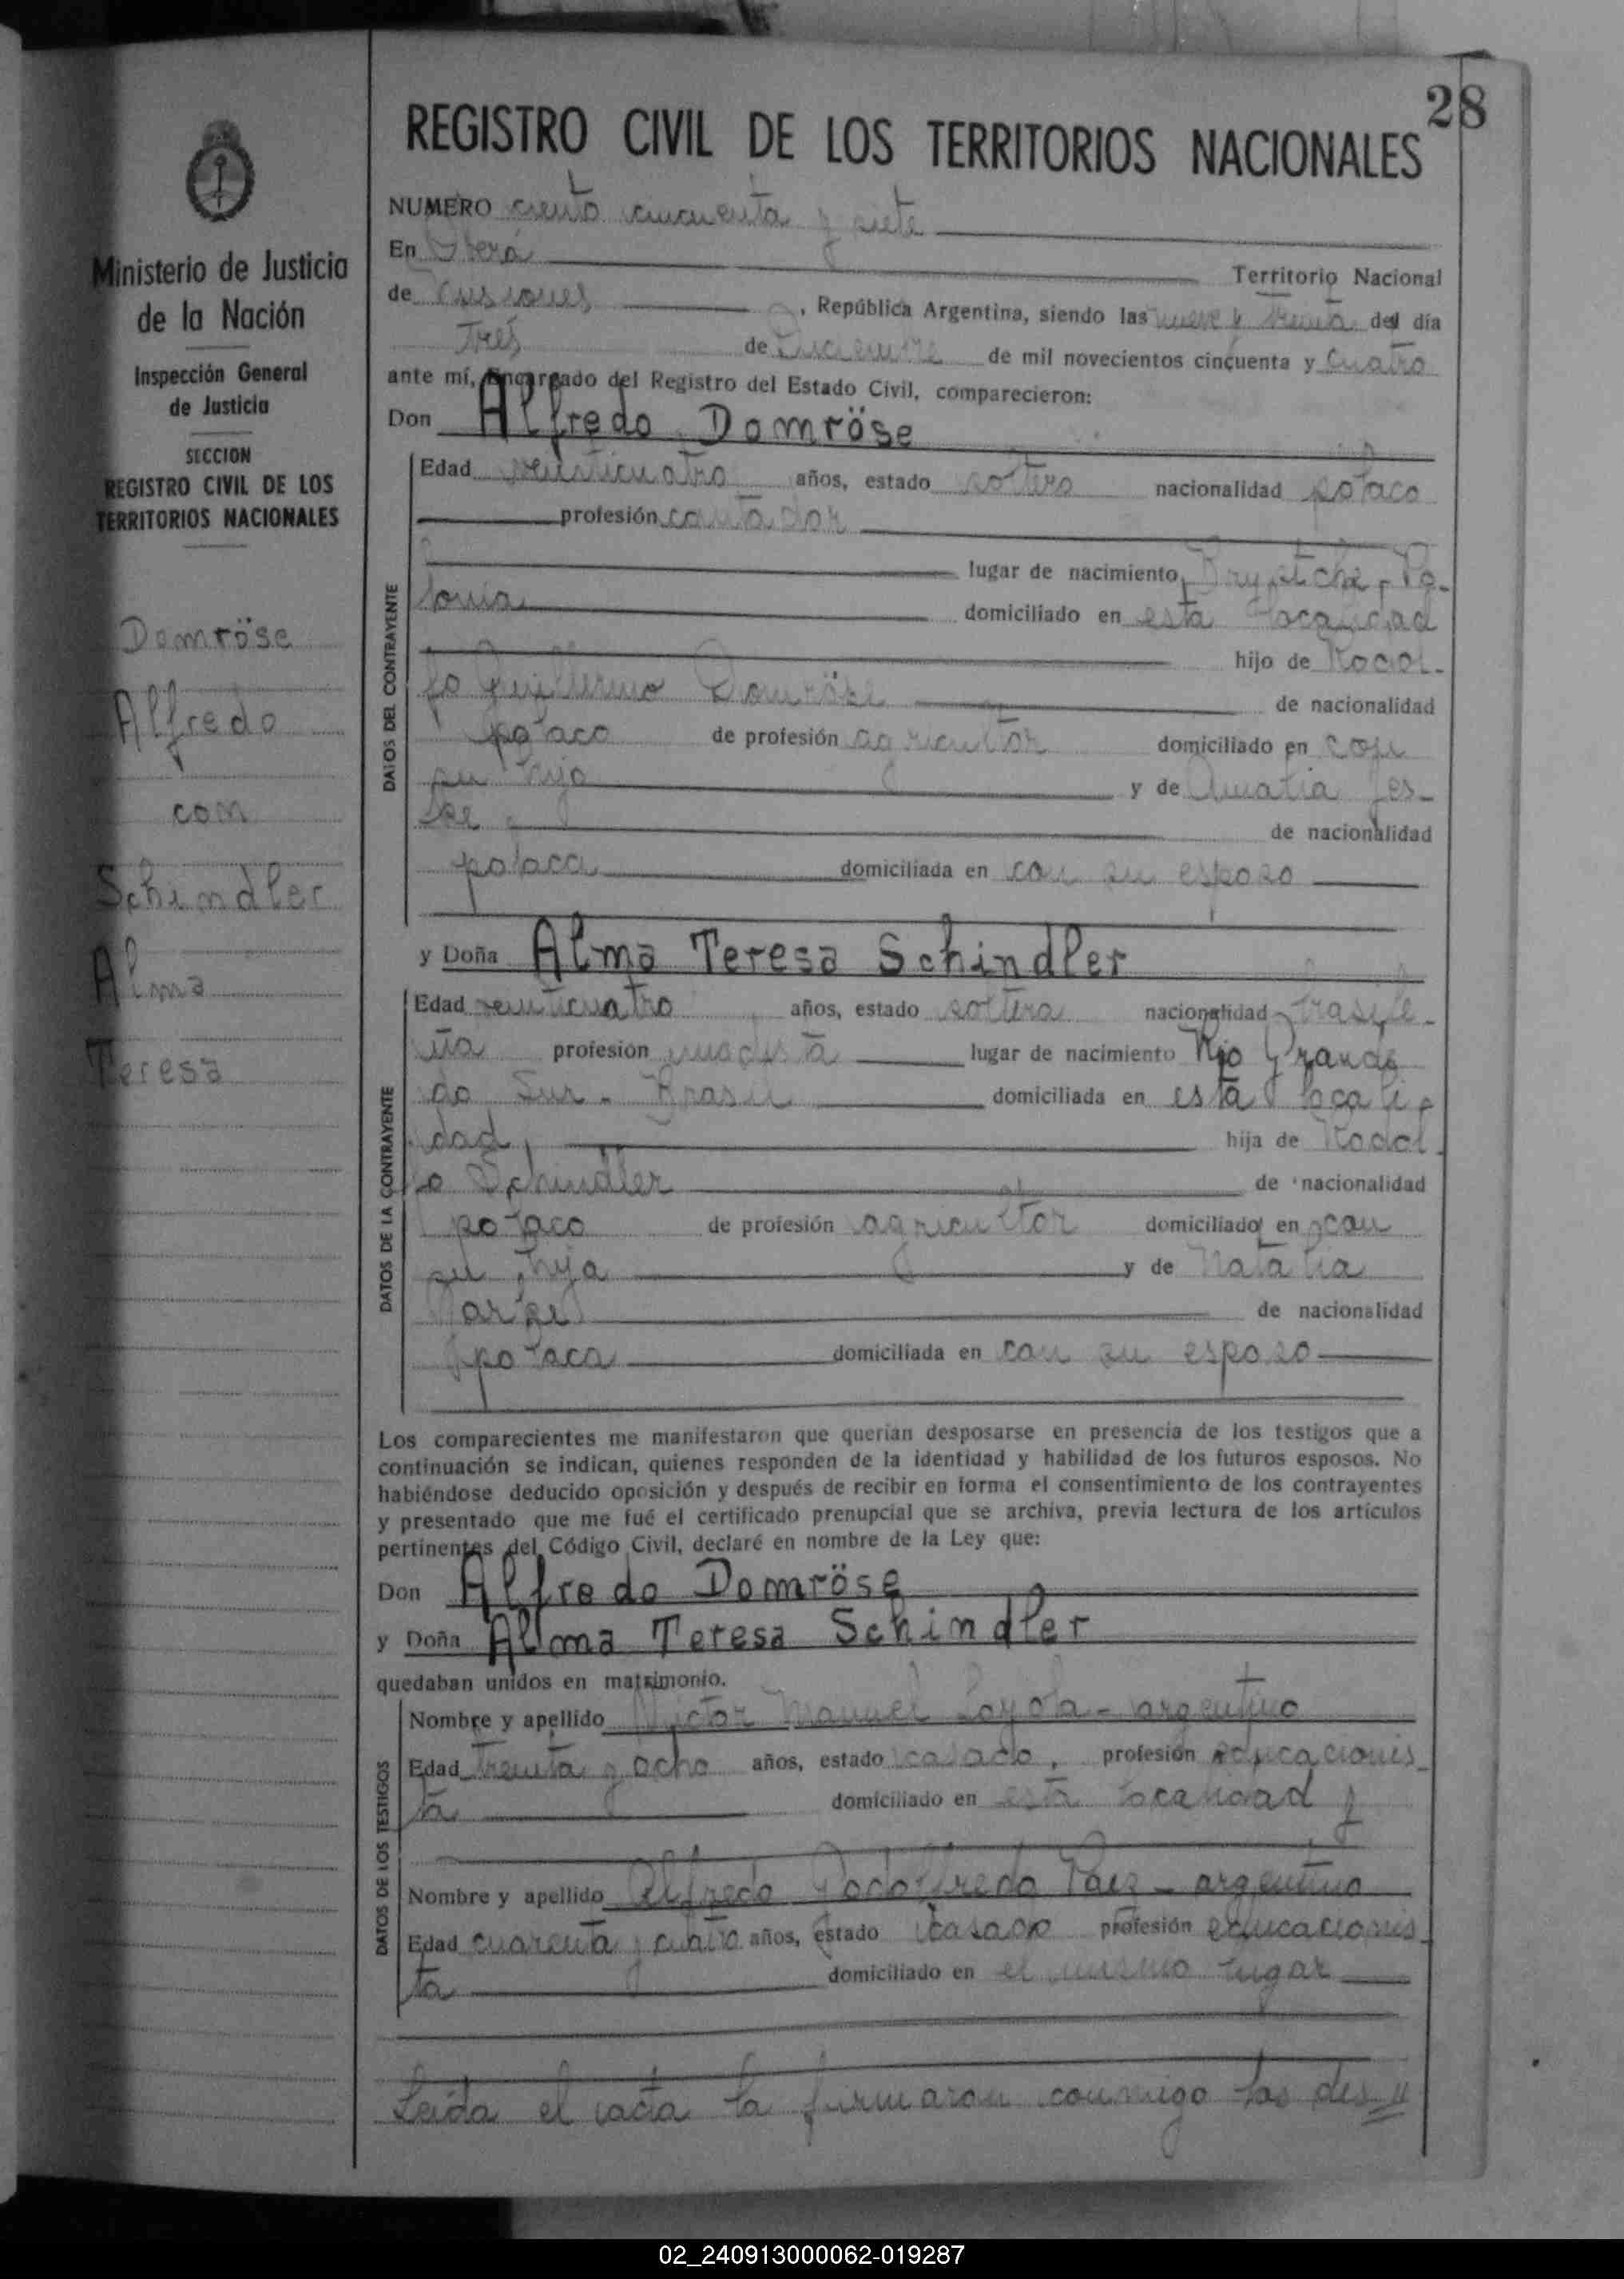 28
REGISTRO CIVIL DE LOS TERRITORIOS NACIONALES
Ministerio de Justicia
de la Nación
Inspección General
de Justicia
SECCION
REGISTRO CIVIL DE LOS
TERRITORIOS NACIONALES
Domröse
Alfredo
con
Schindler
Alma
Teresa
NUMERO ciento cincuenta y siete
En Oberá Territorio Nacional
de Misiones, República Argentina, siendo las nueve y treinta del día
tres de Diciembre de mil novecientos cincuenta y cuatro
ante mí, Encargado del Registro del Estado Civil, comparecieron:
Don Alfredo Domröse
DATOS DEL CONTRAYENTE
Edad veinticuatro años, estado soltero nacionalidad polaco
profesión contador
lugar de nacimiento Po-
lonia domiciliado en esta localidad
hijo de Rodol-
fo Guillermo Domröse de nacionalidad
polaco de profesión agricultor domiciliado en con
su hijo y de Amalia
de nacionalidad
polaca domiciliada en con su esposo
y Doña Alma Teresa Schindler
DATOS DE LA CONTRAYENTE
Edad veinticuatro años, estado soltera nacionalidad brasile-
ña profesión modista lugar de nacimiento Rio Grande
do Sur - Brasil domiciliada en esta locali-
dad, hija de Rodol-
fo Schindler de nacionalidad
polaco de profesión agricultor domiciliado en con
su hija y de Natalia
de nacionalidad
polaca domiciliada en con su esposo
Los comparecientes me manifestaron que querían desposarse en presencia de los testigos que a
continuación se indican, quienes responden de la identidad y habilidad de los futuros esposos. No
habiéndose deducido oposición y después de recibir en forma el consentimiento de los contrayentes
y presentado que me fué el certificado prenupcial que se archiva, previa lectura de los artículos
pertinentes del Código Civil, declaré en nombre de la Ley que:
Don Alfredo Domröse
y Doña Alma Teresa Schindler
quedaban unidos en matrimonio.
DATOS DE LOS TESTIGOS
Nombre y apellido Victor Manuel Loyola - argentino
Edad treinta y ocho años, estado casado, profesión educacionis-
ta domiciliado en esta localidad y
Nombre y apellido Alfredo Godofredo Paez - argentino
Edad cuarenta y cuatro años, estado casado profesión educacionis-
ta domiciliado en el mismo lugar
Leída el acta la firmaron conmigo los des//
02_240913000062-019287